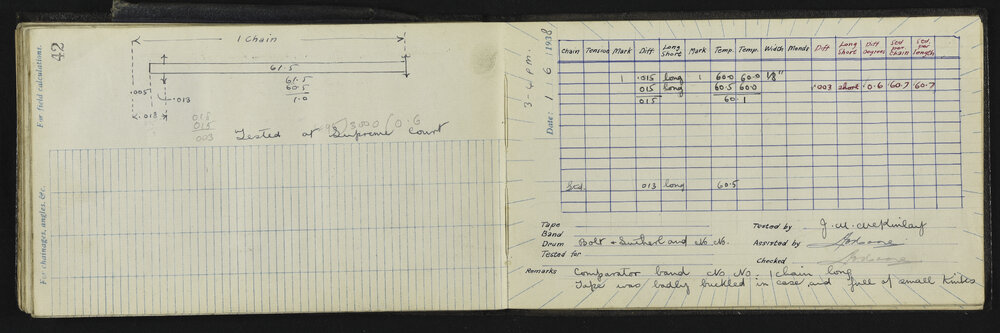 42
For field calculations.
For chainages, angles, &c.
1 Chain
61.5
61.5
60.5
1.0
.005
.013
.013
015
015
003
3000 (0.6
Tested at Supreme Court
3-4 P.M.
Date: 1 6 1938
Chain Tension Mark Diff Long Short Mark Temp. Temp. Width Mends Diff Long Short Diff Degrees Std per Chain Std. per length
1 .015 long 1 60.0 60.0 1/8"
015 long 60.5 60.0 .003 short 0.6 60.7 60.7
015 60.1
Std. 013 long 60.5
Tape
Band
Drum Bolt & Sutherland No No.
Tested for
Tested by
Assisted by
Checked
Remarks Comparator band No No. 1 chain long
Tape was badly buckled in case and full of small kinks